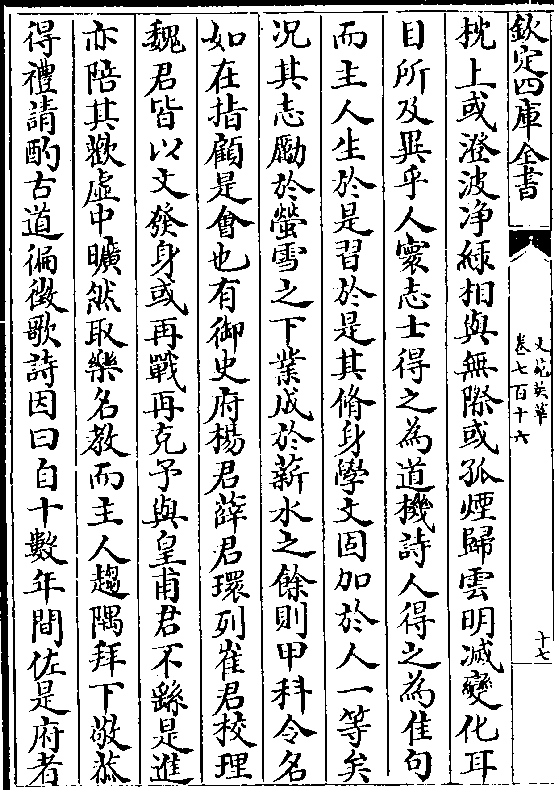 欽定四庫全書
文苑英華
卷七百十六
十七
枕上或澄波浄緑相與無際或孤煙歸雲明滅變化耳
目所及異乎人寰志士得之為道機詩人得之為佳句
而主人生於是習於是其脩身學文固加於人一等矣
况其志勵於螢雪之下業成於薪水之餘則甲科令名
如在指顧是會也有御史府楊君薛君環列崔君校理
魏君皆以文發身或再戰再克予與皇甫君不繇是進
亦陪其歡虚中曠然取樂名教而主人趨隅拜下敬恭
得禮請酌古道徧徴歌詩因曰自十數年間佐是府者